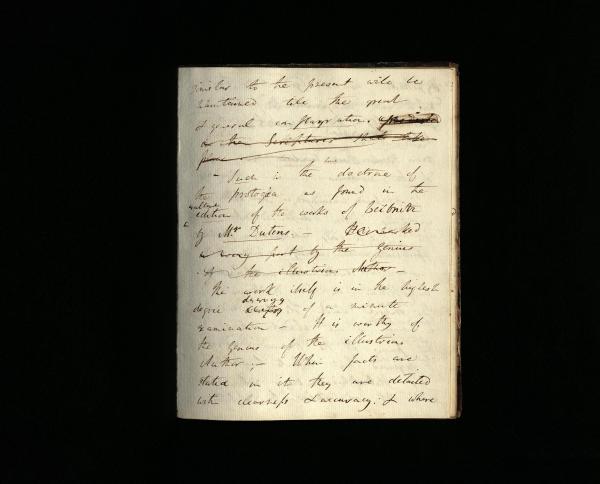 similar to the present will be
maintained till the great
& general conflagration.
in the Scriptures shall take
place.
"Such is the doctrine of
the protogæa as found in the
edition of the works of Leibnitz
by Mr. Dutens. —
a very part by the Genius
of the illustrious Author —
The work itself is in the highest
deserving
degree of a minute
examination — It is worthy of
the genius of the illustrious
Author; — When facts are
stated in it they are detailed
with clearness & accuracy; & where